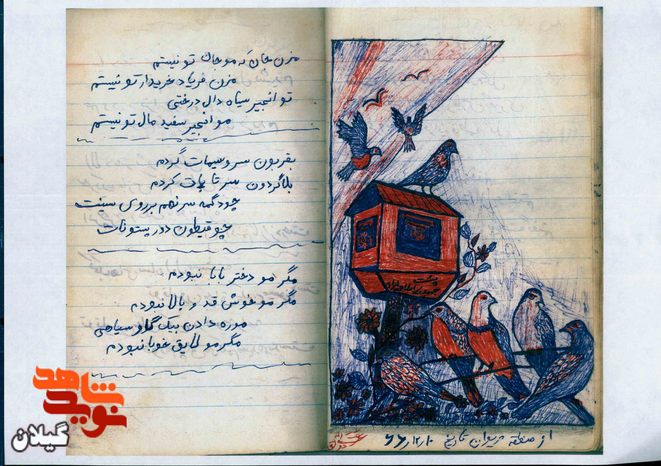 مزن جان که مو جان تو نیستم
مزن فریاد خریدار تو نیستم
تو انجیر سیاه دال درختی
مو انجیر سفید مال تو نیستم
بقربون سر و سیمات گردم
بلاگردون سر تا پات گردم
چو دگمه سر نهم بر روی سینت
چو قیطون دور پستونات
مگر مو دختر بابا نبودم
مگر مو خوش قد و بالا نبودم
موره دادن بیک گاو سیاهی
مگر مو لایق خوبا نبودم
از منطقه مریوان تاریخ
نوید شاهد
گیلان